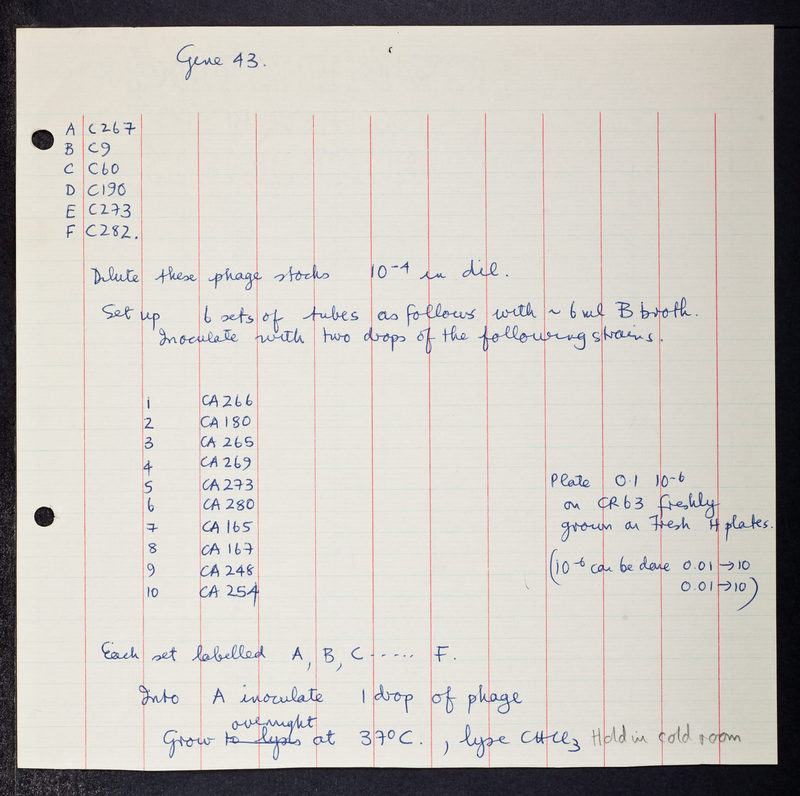 Gene 43.
A C267
B C9
C C60
D C190
E C273
F C282.
Dilute these phage stocks 10⁻⁴ in dil.
Set up 6 sets of tubes as follows with ~ 6 ml B broth.
Inoculate with two drops of the following strains.
1 CA 266
2 CA 180
3 CA 265
4 CA 269
5 CA 273
6 CA 280
7 CA 165
8 CA 167
9 CA 248
10 CA 254
Plate 0.1 10⁻⁶
on CR63 freshly
grown on Fresh H plates.
(10⁻⁶ can be done 0.01 → 10
0.01 → 10)
Each set labelled A, B, C ...... F.
Into A inoculate 1 drop of phage
overnight
Grow to lysis at 37°C. , lyse CHCl₃ Hold in cold room